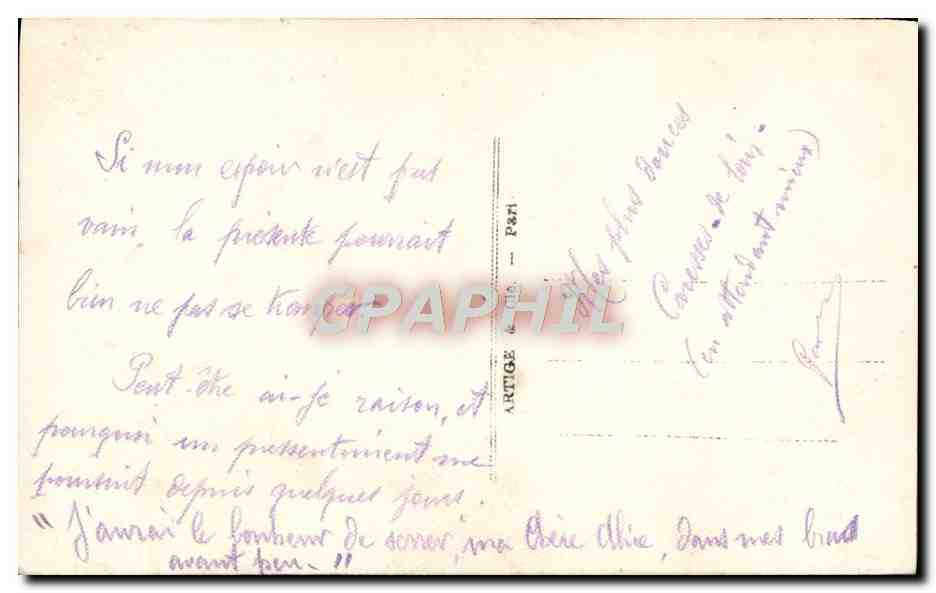 Si mon espoir n'est pas
vain, la présente pourrait
bien ne pas se tromper
Peut-être ai-je raison, et
pourquoi un pressentiment me
poursuit depuis quelques jours.
"J'aurai le bonheur de serrer, ma chère Alice, dans mes bras
avant peu."
ARTIGE & Cie. — Pari
Mes plus douces
Caresses de loin -
(en attendant mieux)
CPAPHIL